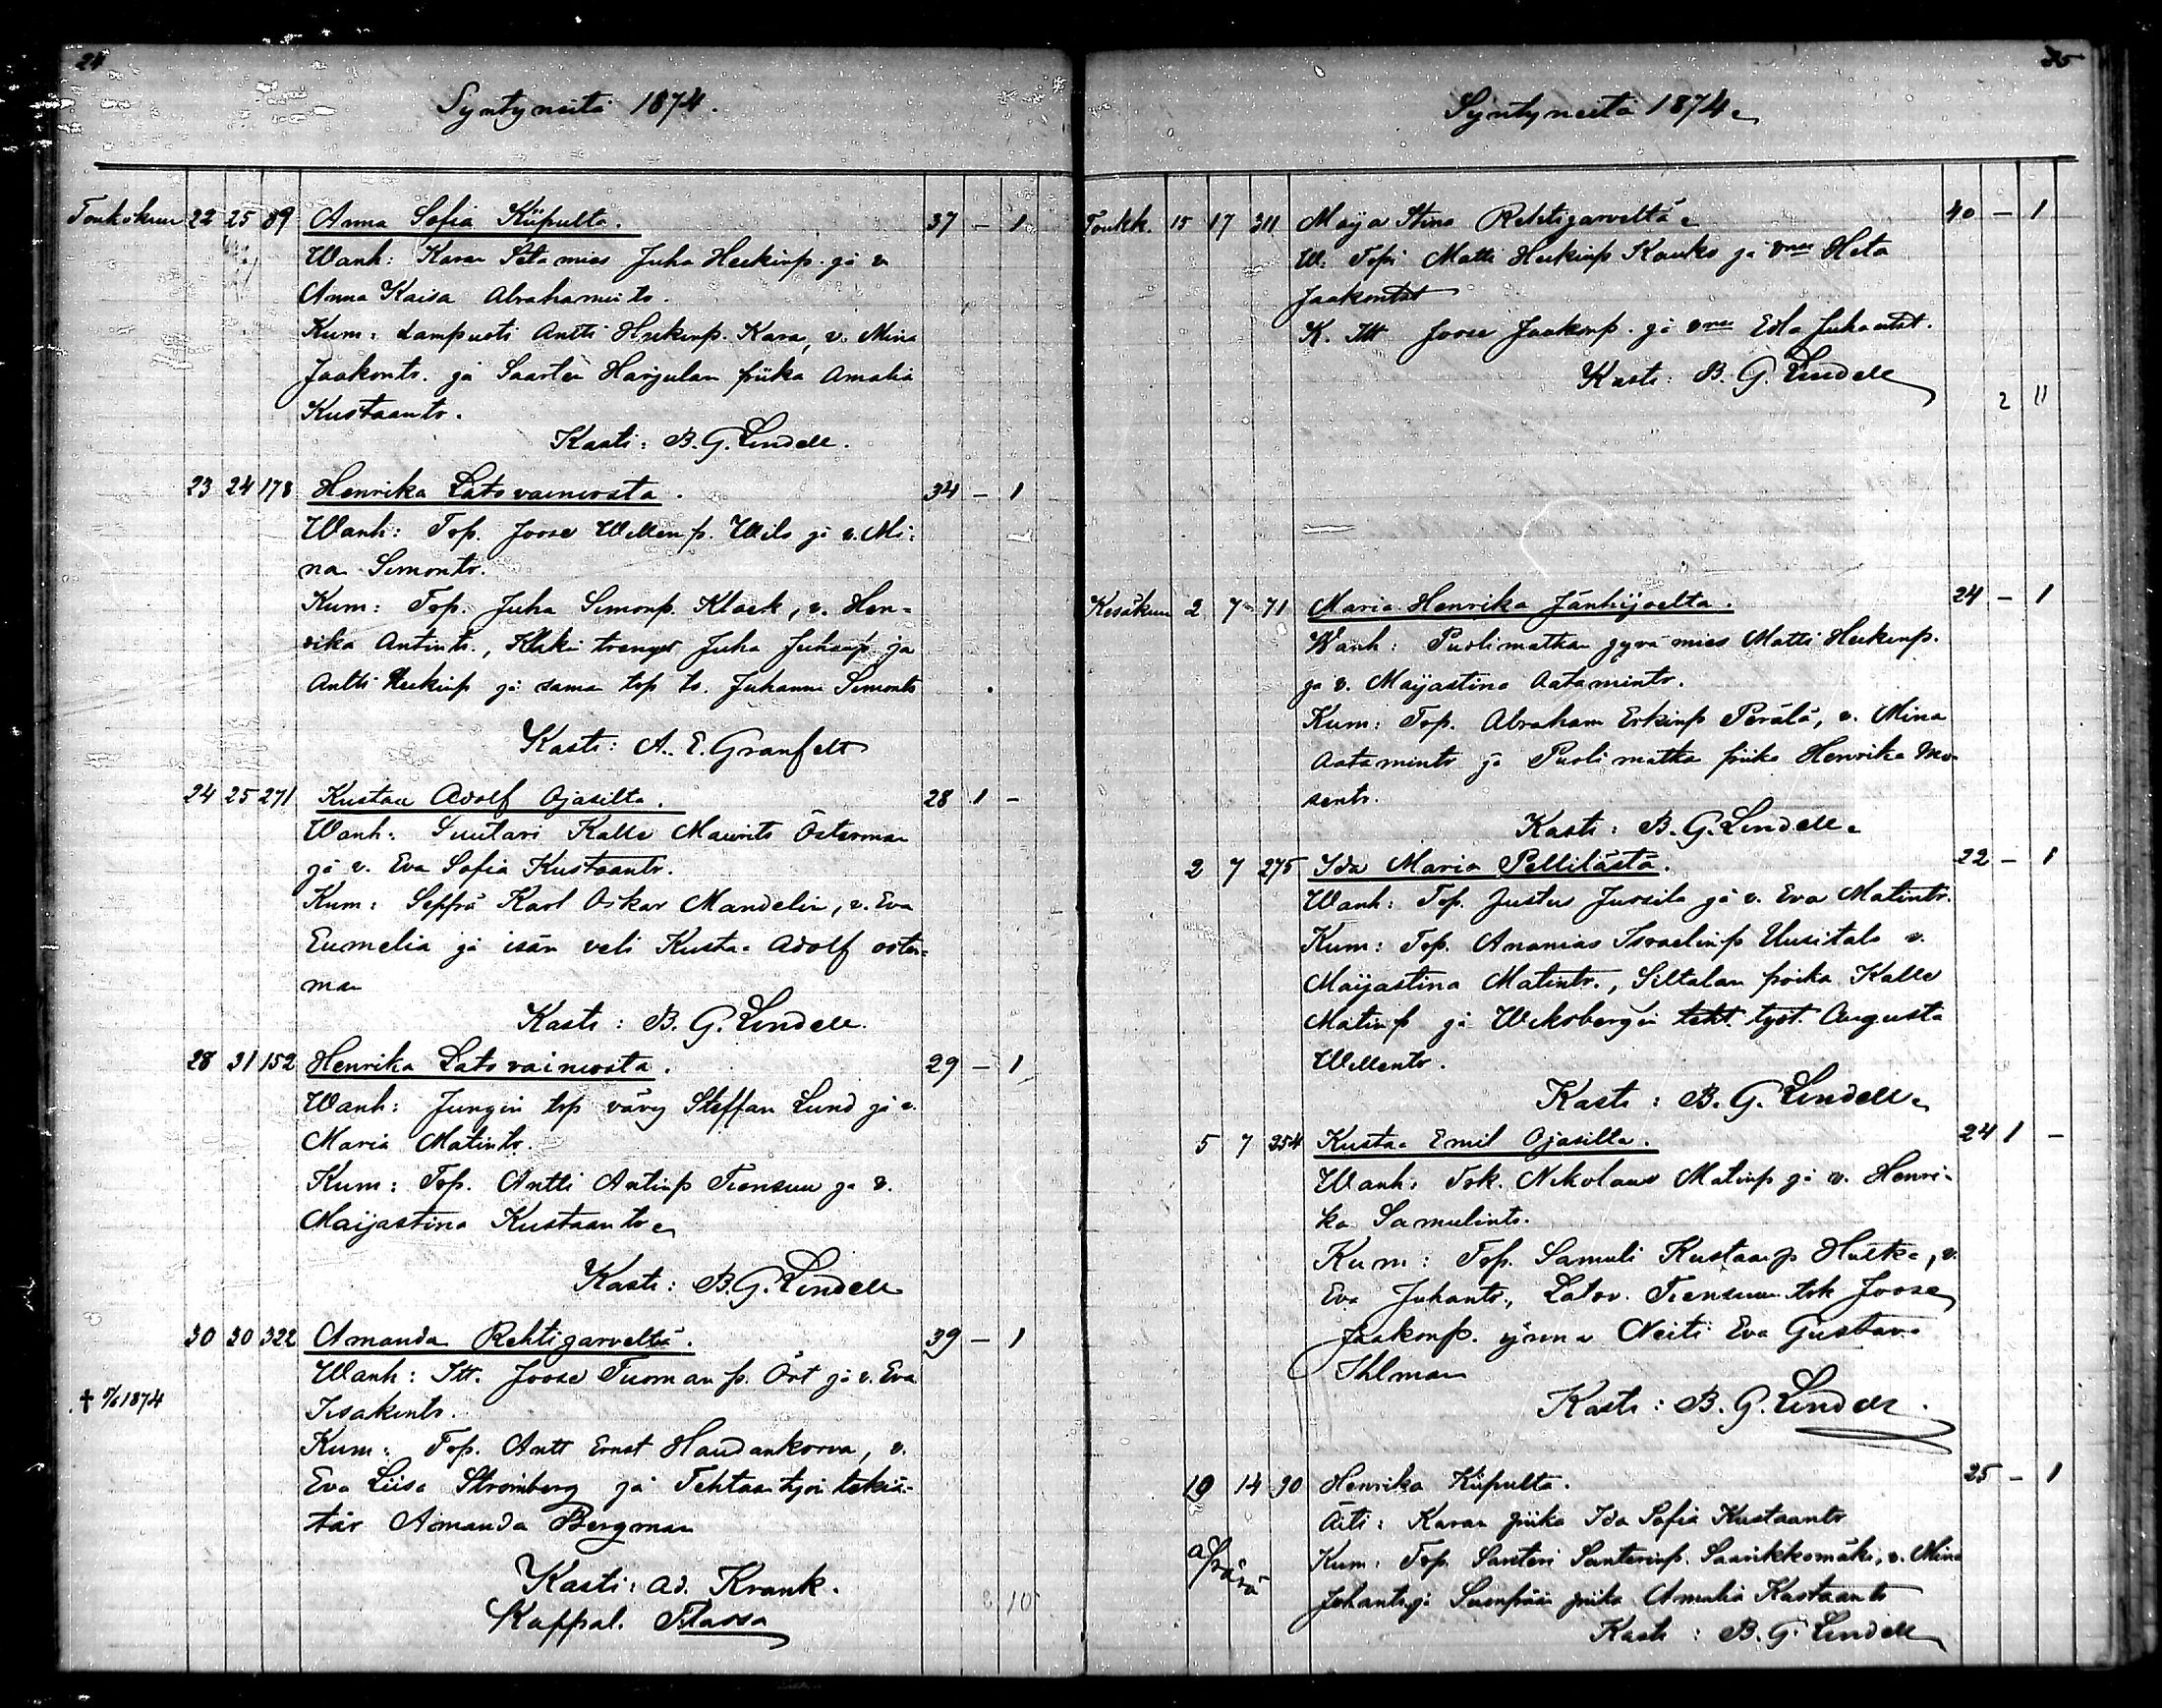 24
Syntyneitä 1874.
Toukokuu 22 25 89 Anna Sofia Kiipulta. 37 - 1
Wanh: Karan Sotamies Juha Heikinp. ja v.
Anna Kaisa Abrahamints.
Kum: Lampuoti Antti Heikinp. Kara, v. Mina
Jaakonts. ja Saarten Harjulan piika Amalia
Kustaants.
Kasti: B. G. Lindell.
23 24 178 Henrika Latovainiosta. 34 - 1
Wanh: Top. Joose Willenp. Wilo ja v. Mi-
na Simonts.
Kum: Top. Juha Simonp. Klack, v. Hen-
rika Antints., Klaki trengit Juha Juhanp ja
Antti Heikinp ja saman top ts. Juhanna Simonts
Kasti: A. E. Granfelt
24 25 271 Kustaa Adolf Ojasilta. 28 1 -
Wanh: Suutari Kalle Maurits Österman
ja v. Eva Sofia Kustaants.
Kum: Seppä Karl Oskar Mandelin, v. Eva
Eumelia ja isän veli Kustaa Adolf öster-
man
Kasti: B. G. Lindell.
28 31 152 Henrika Latovainiosta. 29 - 1
Wanh: Jungin top vävy Steffan Lund ja v.
Maria Matints.
Kum: Top. Antti Antinp Tiensuu ja v.
Maijastina Kustaants.
Kasti: B. G. Lindell
30 30 322 Amanda Rehtijärveltä. 39 - 1
Wanh: Itt. Joose Tuomanp. Öst ja v. Eva
Iisakints.
† 5/6 1874
Kum: Top. Antt Ernst Haudankorva, v.
Eva Liisa Strömberg ja Tehtaan työn tekiä-
tär Amanda Bergman
Kasti: Ad. Krank.
Kappal.
10
35
Syntyneitä 1874.
Toukk. 15 17 311 Maija Stina Rehtijärveltä. 40 - 1
W. Top. Matti Heikinp Kauko ja vmo Heta
Jaakontst
K. Itt Joose Jaakonp. ja vmo Edla Juhantst.
Kasti: B. G. Lindell
2 11
Kesäkuu 2 7 71 Maria Henrika Jänhijoelta. 24 - 1
Wanh: Puolimatkan jyvämies Matti Heikinp.
ja v. Maijastina Aatamints.
Kum: Top. Abraham Erkinp Perälä, v. Mina
Aatamints ja Puolimatka piika Henrika Mo-
sents.
Kasti: B. G. Lindell.
2 7 275 Ida Maria Pellilästä. 22 - 1
Wanh: Top. Justus Jussila ja v. Eva Matints.
Kum: Top. Ananias Israelinp Uusitalo v.
Maijastina Matints., Siltalan poika Kalle
Matinp ja Weksbergin teht. tyst. Augusta
Willents.
Kasti: B. G. Lindell.
5 7 254 Kustaa Emil Ojasilta. 24 1 -
Wanh: Tok. Nikolaus Matinp ja v. Henri-
ka Samulints.
Kum: Top. Samuli Kustaanp Hutka, v.
Eva Juhants., Latov. Tiensuun tok Joose
Jaakonp. ynnä Neiti Eva Gustava
Ihlman
Kasti: B. G. Lindell.
19 14 90 Henrika Kiipulta. 25 - 1
Äiti: Karan piika Ida Sofia Kustaants
äpärä
Kum: Top. Santeri Santerinp. Saarikkomäki, v. Mina
Juhants ja Suenpään piika Amalia Kustaants
Kasti: B. G. Lindell